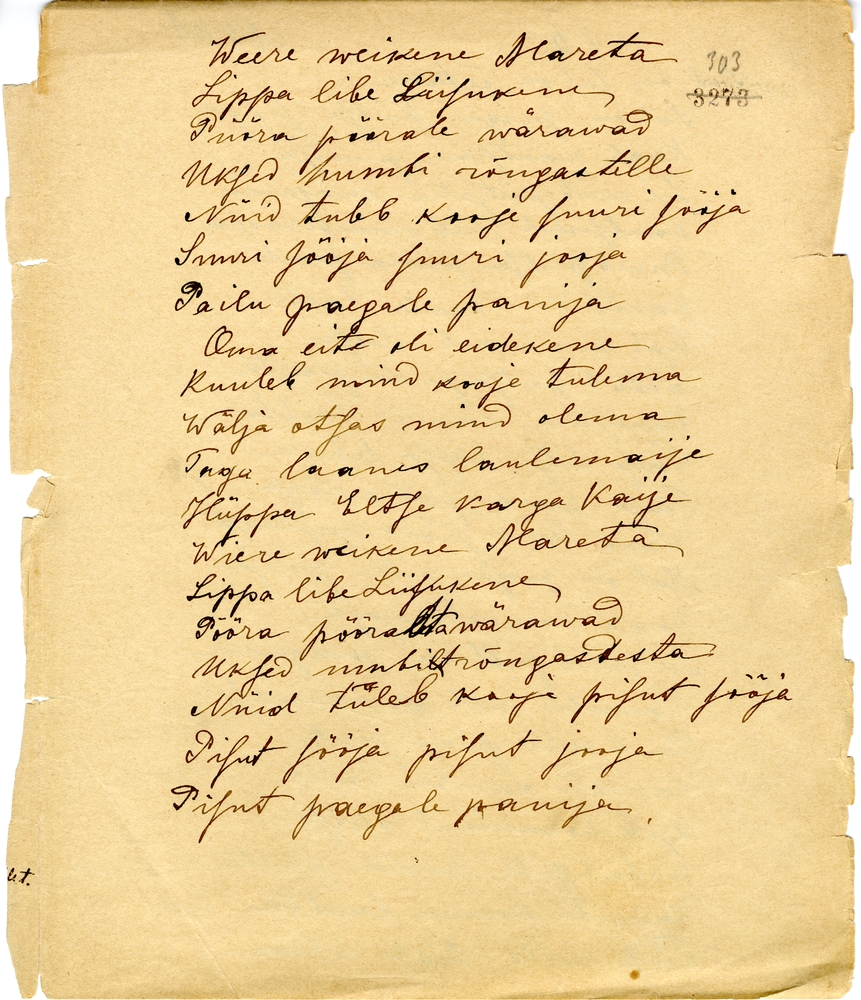 Weere weikene Mareta
303
Lippa libe Liisukene
3273
Pööra pöörale wärawad
Uksed humbi rõngastelle
Nüid tuleb kooje suuri sööja
Suuri sööja suuri jooja
Pailu paegale panija
Oma eite oli eidekene
Kuuleb mind kooje tulema
Wälja otsas mind olema
Taga laanes laulemaije
Hüppa Eltse karga Kaije
Wiere weikene Mareta
Lippa libe Liisukene
Pööra pööralta wärawad
Uksed umbilt rõngastesta
Nüid tuleb kooje pisut sööja
Pisut sööja pisut jooja
Pisut paegale panija.